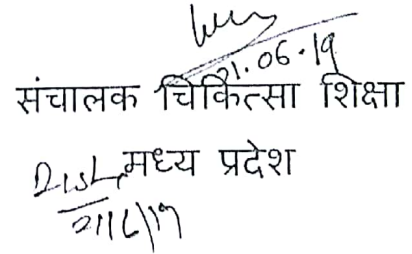 21.06.19
संचालक चिकित्सा शिक्षा
मध्य प्रदेश
21/6/19